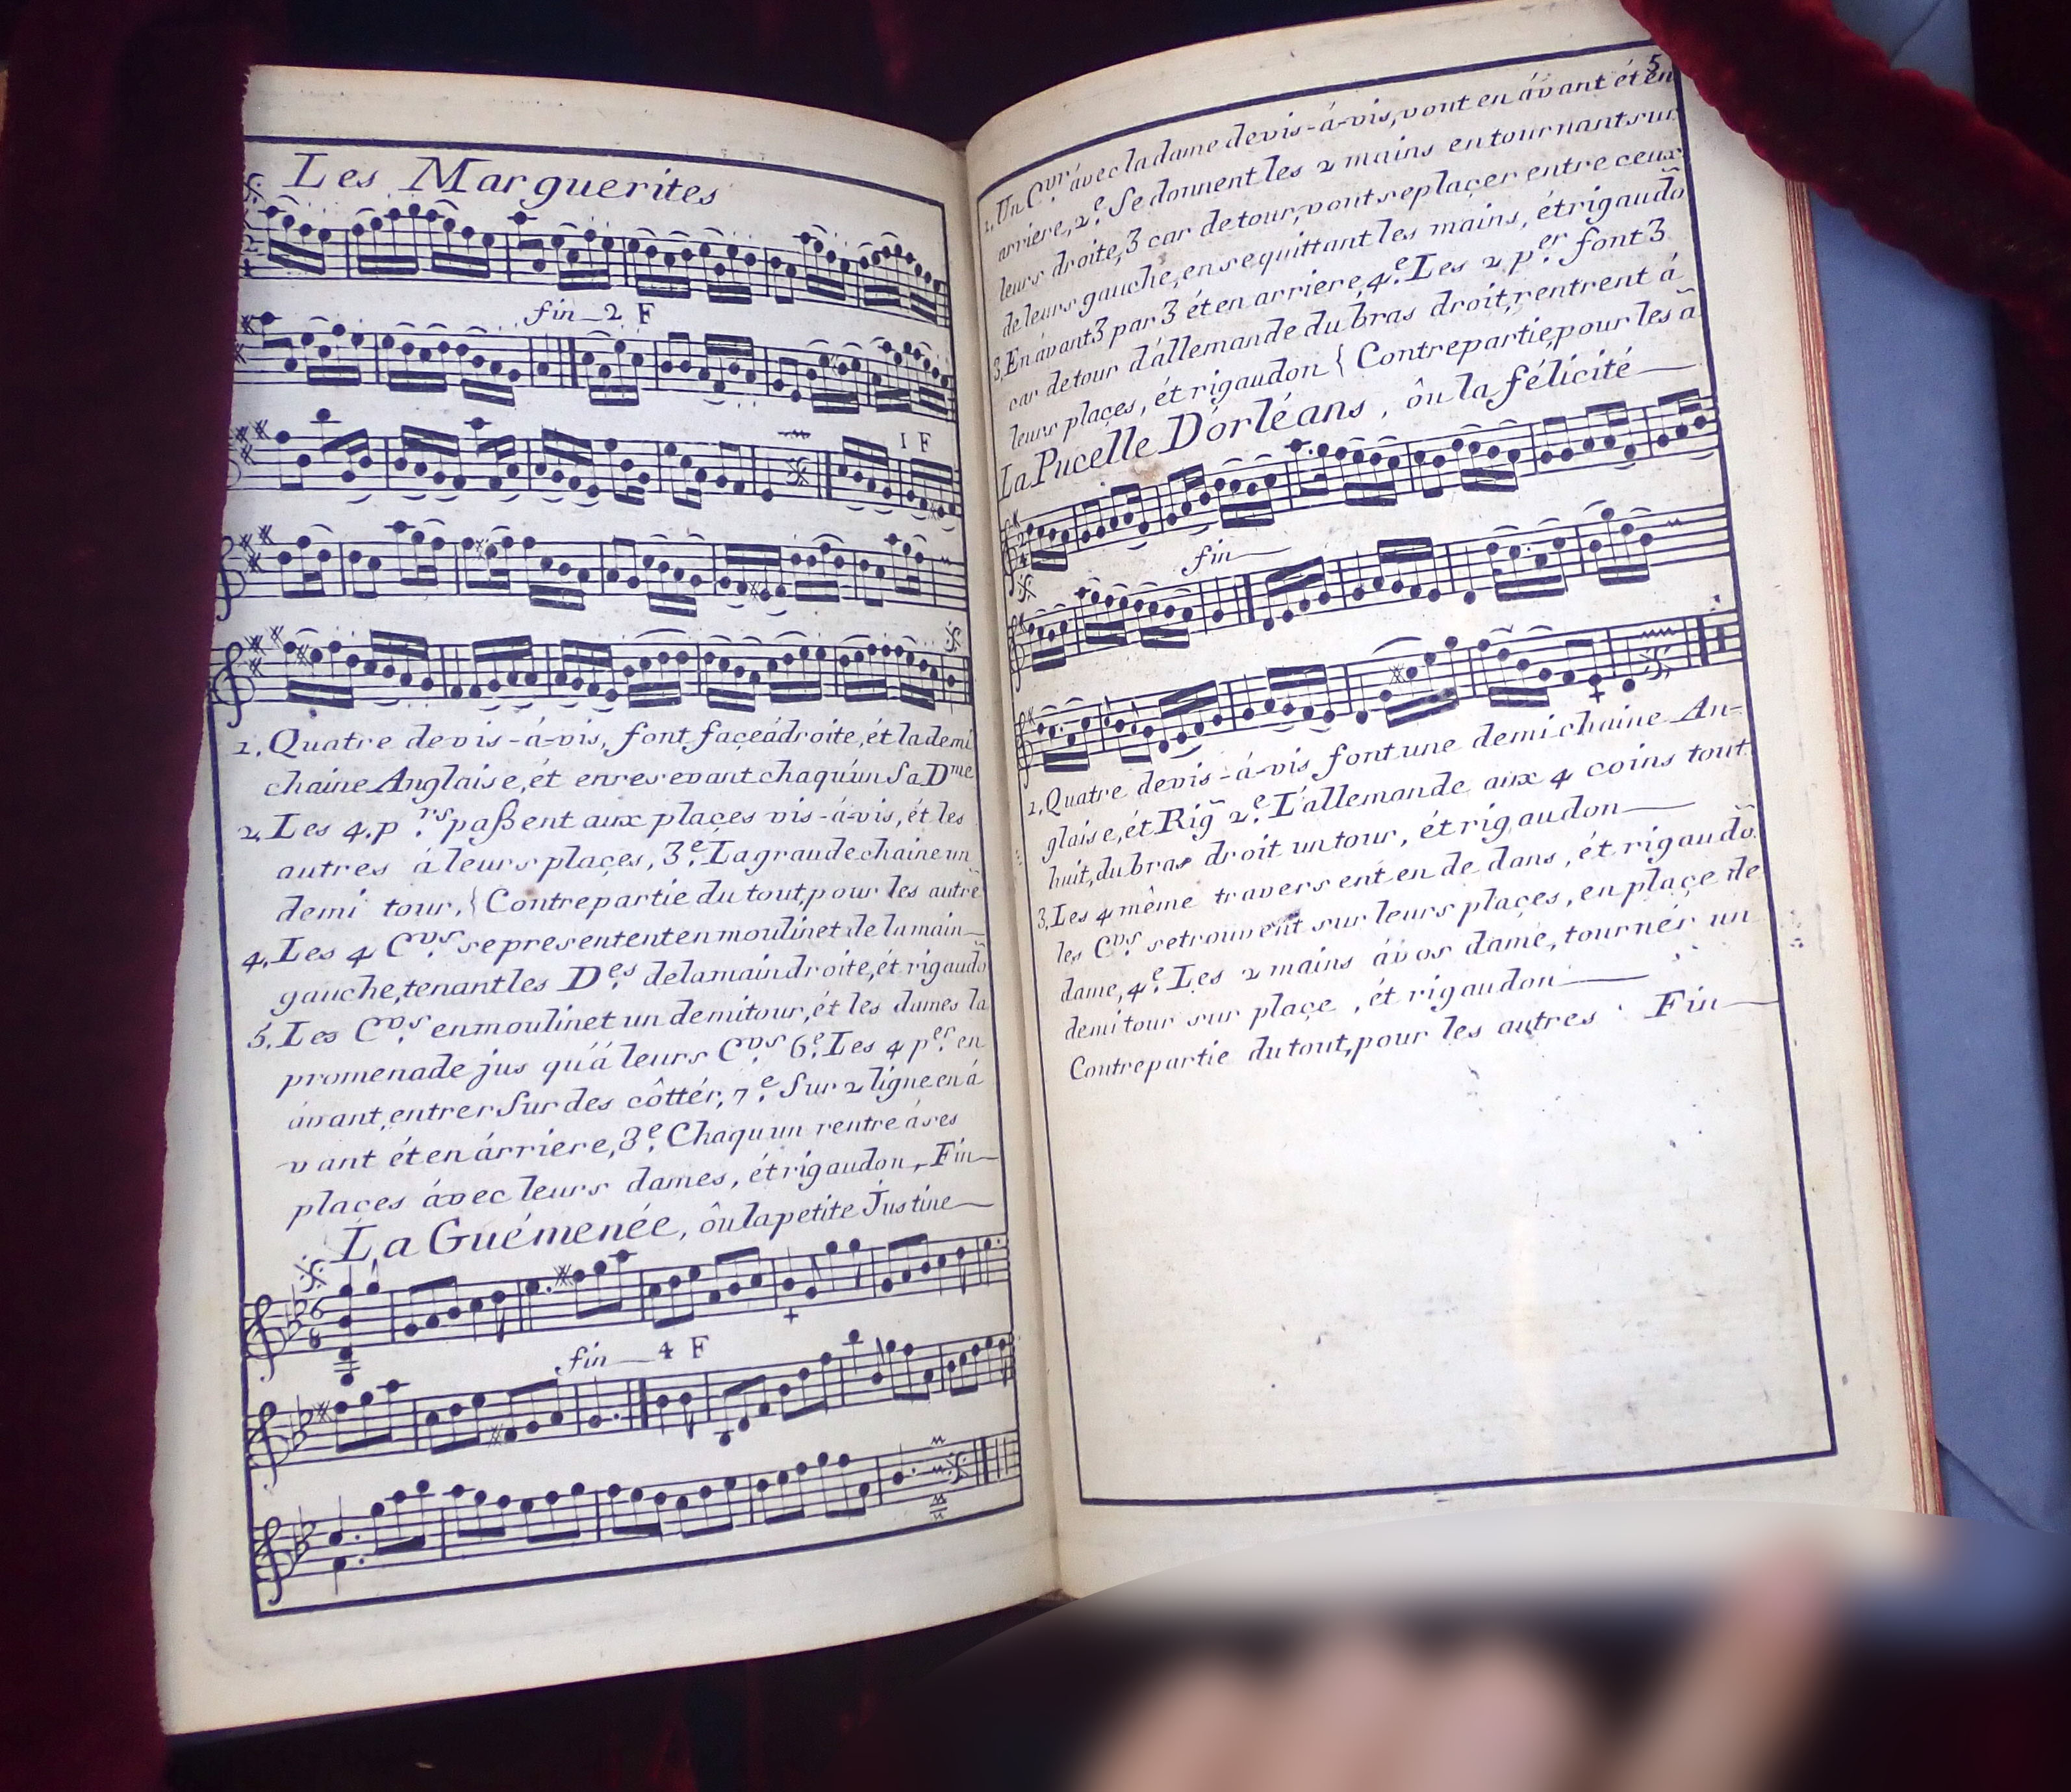 Les Marguerites
fin 2 F
1 F
1. Quatre de vis-á-vis, font façe á droite, ét la demi
chaine Anglaise, ét en resevant chaqu'un Sa D.me
2. Les 4. p.rs paßent aux plaçes vis-á-vis, ét les
autres á leurs plaçes, 3.e La grande chaine un
demi tour. { Contrepartie du tout, pour les autrẽ
4. Les 4 C.vrs se presententen moulinet de la main
gauche, tenant les D.es de la main droite, ét rigaudõ
5. Les C.vrs en moulinet un demi tour, ét les dames la
promenade jus qu'á leurs C.vrs 6.e Les 4 p.er en
ávant, entrer Sur des côttér, 7.e Sur 2 ligne en á
vant ét en árriere, 8.e Chaqu'un rentre á ses
plaçes ávec leurs dames, ét rigaudon, Fin
La Guémenée, ôu la petite Justine
6
8
fin 4 F
5
1. Un C.vr ávec la dame de vis-á-vis, vont en ávant ét en
arriere, 2.e Se donnent les 2 mains en tournant sur
leurs droite, 3 car de tour, vont se plaçer entre ceux
de leurs gauche, en se quittant les mains, ét rigaudõ
3. En ávant 3 par 3 ét en arriere, 4.e Les 2 p.er font 3
car de tour d'állemande du bras droit, rentrent á
leurs plaçes, ét rigaudon { Contrepartie, pour les ã
La Pucelle D'órléans, ôu la félicité
2
4
fin
1. Quatre de vis-á-vis font une demi chaine An-
glaise, ét Rig̃ 2.e L'allemande aux 4 coins tout
huit, du bras droit un tour, ét rigaudon
3. Les 4 même traversent en de dans, ét rigaudõ
les C.vrs se trouvent sur leurs plaçes, en plaçe de
dame, 4.e Les 2 mains á vos dame, tournér un
demi tour sur plaçe, ét rigaudon
Contrepartie du tout, pour les autres. Fin